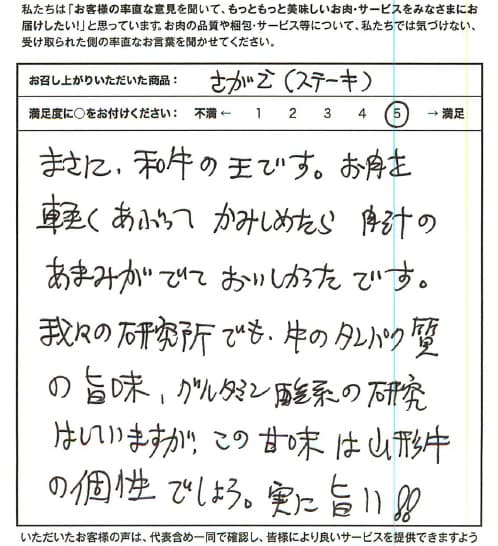 私たちは「お客様の率直な意見を聞いて、もっともっと美味しいお肉・サービスをみなさまにお
届けしたい!」と思っています。お肉の品質や梱包・サービス等について、私たちでは気づけない、
受け取られた側の率直なお言葉を聞かせてください。
お召し上がりいただいた商品: さがご(ステーキ)
満足度に○をお付けください: 不満 ← 1 2 3 4 5 → 満足
まさに、和牛の王です。お肉を
軽くあぶって かみしめたら 肉汁の
あまみがでて おいしかったです。
我々の研究所でも、牛のタンパク質
の旨味、グルタミン酸系の研究
はしていますが、この甘味は山形牛
の個性でしょう。実に旨い!!
いただいたお客様の声は、代表含め一同で確認し、皆様により良いサービスを提供できますよう